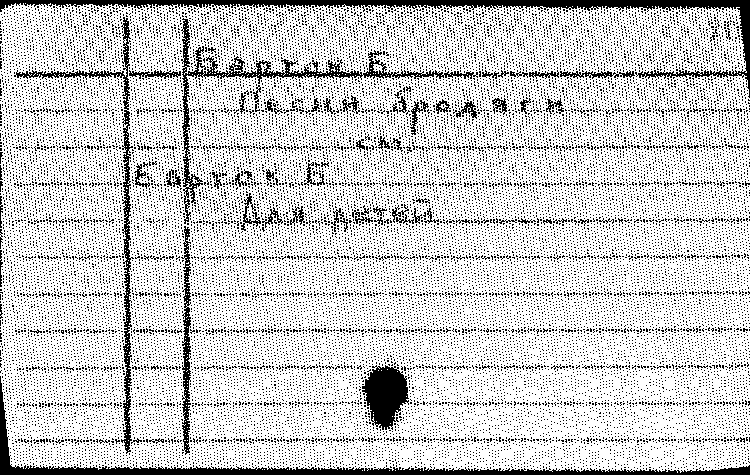 Барток Б
Песни бродяги
см.
Барток Б
Для детей